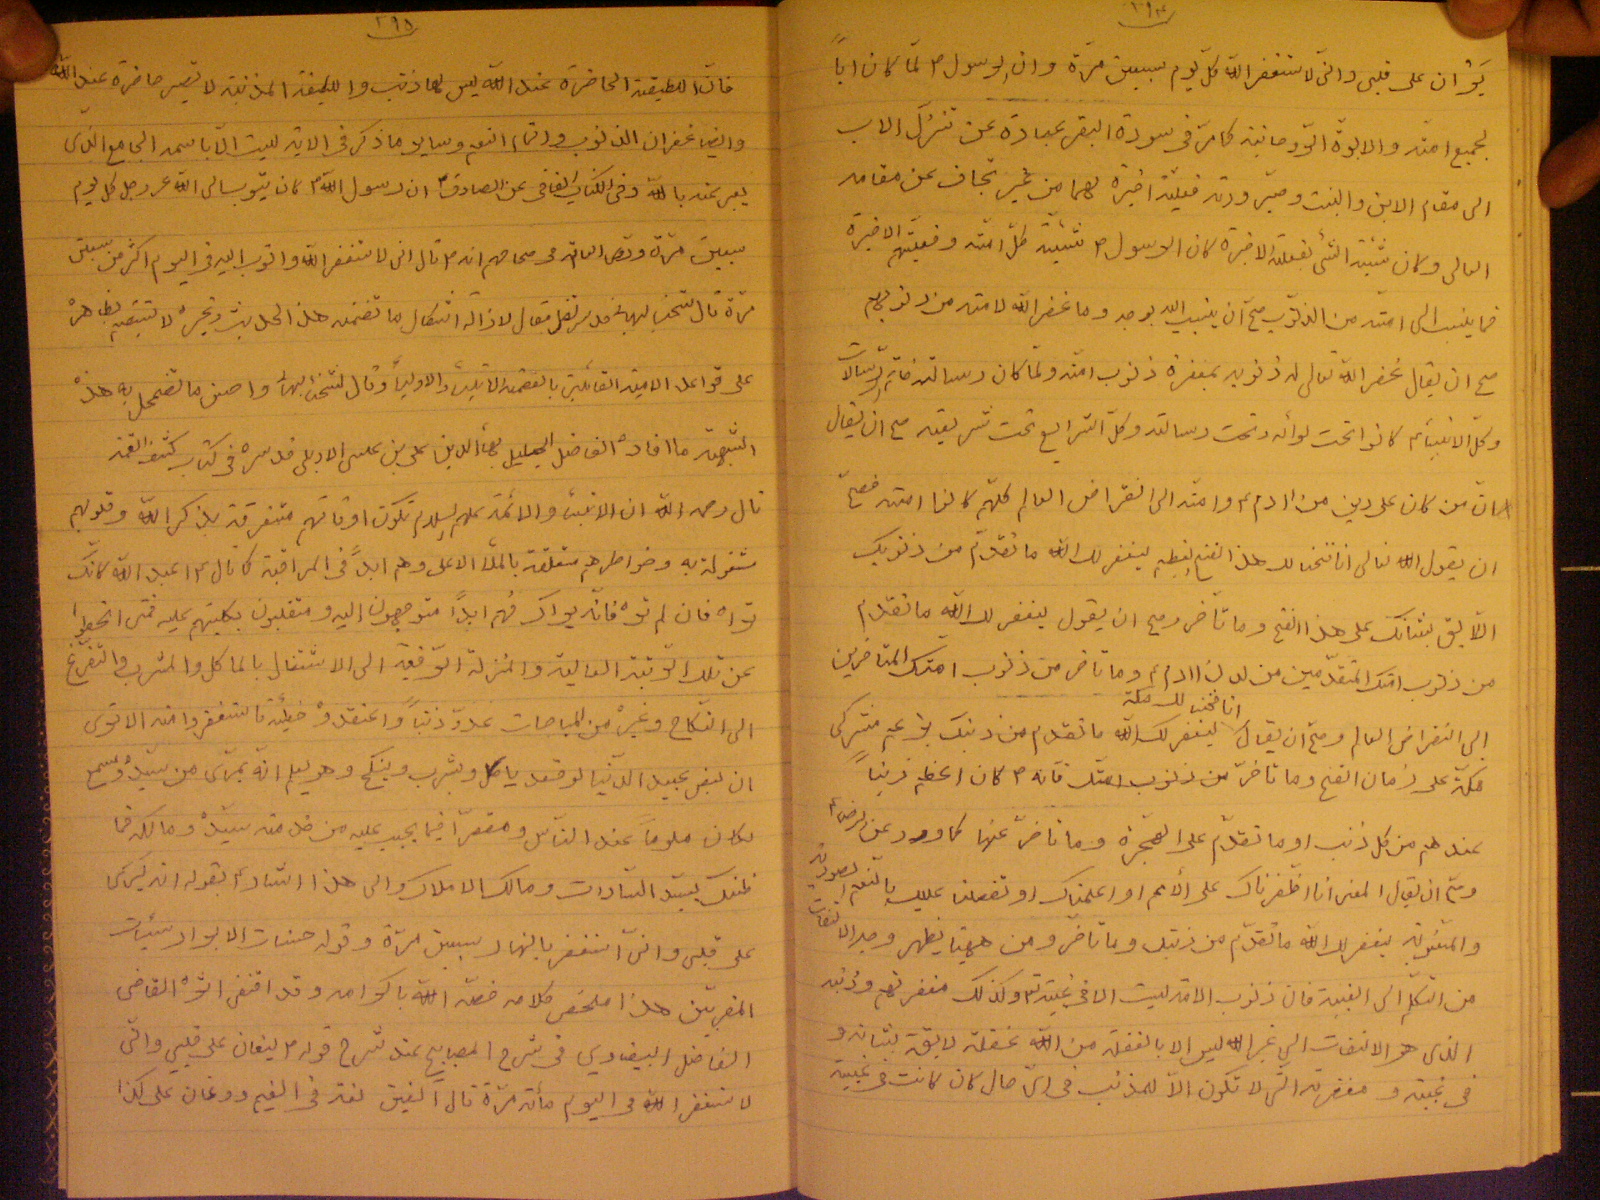 ٢٩٤
ليران على قلبى وانى لاستغفر الله كل يوم سبعين مرة وان الرسول ص لما كان ابا
لجميع امته والابوة الروحانية كما مر فى سورة البقر عبارة عن تنزل الاب
الى مقام الابن والبنت وصيرورته فعلية اخيرة لهما من غير تجاف عن مقامه
العالى وكان شيئية الشئ بفعليته الاخيرة كان الرسول ص شيئية كل امته وفعليتهم الاخيرة
فما ينسب الى امته من الذنوب صح ان ينسب اليه بوجه وما غفر الله لامته من ذنوبهم
صح ان يقال غفر الله تعالى له ذنوبه بمغفرة ذنوب امته ولما كان رسالته خاتم الرسالات
وكل الانبياء ع كانوا تحت لوائه وتحت رسالته وكل الشرايع تحت شريعته صح ان يقال
ان من كان على دين من ادم ع وامته الى انقراض العالم كلهم كانوا امته فصح
ان يقول الله تعالى انا فتحنا لك هذا الفتح العظيم ليغفر لك الله ما تقدم من ذنوبك
اللايق بشانك على هذا الفتح وما تأخر وصح ان يقول ليغفر لك الله ما تقدم
من ذنوب امتك المتقدمين من لدن ادم ع وما تاخر من ذنوب امتك المتاخرين
الى انقراض العالم وصح ان يقال انا فتحنا لك مكة ليغفر لك الله ما تقدم من ذنبك بزعم مشركى
مكة على زمان الفتح وما تاخر من ذنوب امتك فانه ص كان اعظم ذنبا
عندهم من كل ذنب او ما تقدم على الهجرة وما تاخر عنها كما ورد عن الرضا ع
وصح ان يقال المعنى انا اظفرناك على الأمم او اعلمناك او تفضلنا عليك بالنعم الصورية
والمعنوية ليغفر لك الله ما تقدم من ذنبك وما تاخر ومن ههنا يظهر وجه الالتفات
من التكلم الى الغيبة فان ذنوب الامة ليست الا فى غيبته وكذلك مغفرتهم وذنبه
الذى هو الالتفات الى غير الله ليس الا بالغفلة من الله غفلة لايقة بشانه و
فى غيبته و مغفرته التى لا تكون الا للمذنب فى اى حال كان كانت فى غيبته
٢٩٥
فان اللطيفة الحاضرة عند الله ليس لها ذنب واللطيفة المذنبة لا تصير حاضرة عند الله
وايضا غفران الذنوب واتمام النعم وساير ما ذكر فى الاية ليست الا باسمه الجامع الذى
يعبر عنه بالله وفى الكتاب الكافى عن الصادق ع ان رسول الله ص كان يتوب الى الله عز وجل كل يوم
سبعين مرة وروى العامة فى صحاحهم انه ص قال انى لاستغفر الله واتوب اليه فى اليوم اكثر من سبعين
مرة قال شيخنا البهائى قدس سره تفصل مقال لازالة اشكال ما تضمنه هذا الحديث ونحوه لا تستقيم بظاهره
على قواعد الامية القائلين بالعصمة وقال شيخنا البهائى واحسن ما تضمحل به هذه
الشبهة ما افاده الفاضل الجليل بهاء الدين على بن عيسى الاربلى قدس سره فى كتاب كشف الغمة
قال رحمه الله ان الانبياء والائمة عليهم السلام تكون اوقاتهم مستغرقة بذكر الله وقلوبهم
مشغولة به وخواطرهم متعلقة بالملأ الاعلى وهم ابدا فى المراقبة كما قال ع اعبد الله كانك
تراه فان لم تره فانه يراك فهم ابدا متوجهون اليه ومقبلون بكليتهم عليه فمتى انحطوا
عن تلك الرتبة العالية والمنزلة الرفيعة الى الاشتغال بالماكل والمشرب والتفرغ
الى النكاح وغيره من المباحات عدوه ذنبا واعتقدوه خطيئة فاستغفروا منه الا ترى
ان بعض عبيد الدنيا لو قعد ياكل ويشرب وينكح وهو يعلم انه بمراى من سيده ومسمع
لكان ملوما عند الناس ومقصرا فيما يجب عليه من خدمته سيده ومالكه فما
ظنك بسيد السادات ومالك الاملاك والى هذا اشار ع بقوله انه ليران
على قلبى وانى استغفر بالنهار سبعين مرة وقوله حسنات الابرار سيئات
المقربين هذا ملخص كلامه خصه الله باكرامه وقد اقتفى اثره القاضى
الفاضل البيضاوى فى شرح المصابيح عند شرح قوله ص ليغان على قلبى وانى
لاستغفر الله فى اليوم مأة مرة قال الغين لغة فى الغيم وغان على كذا